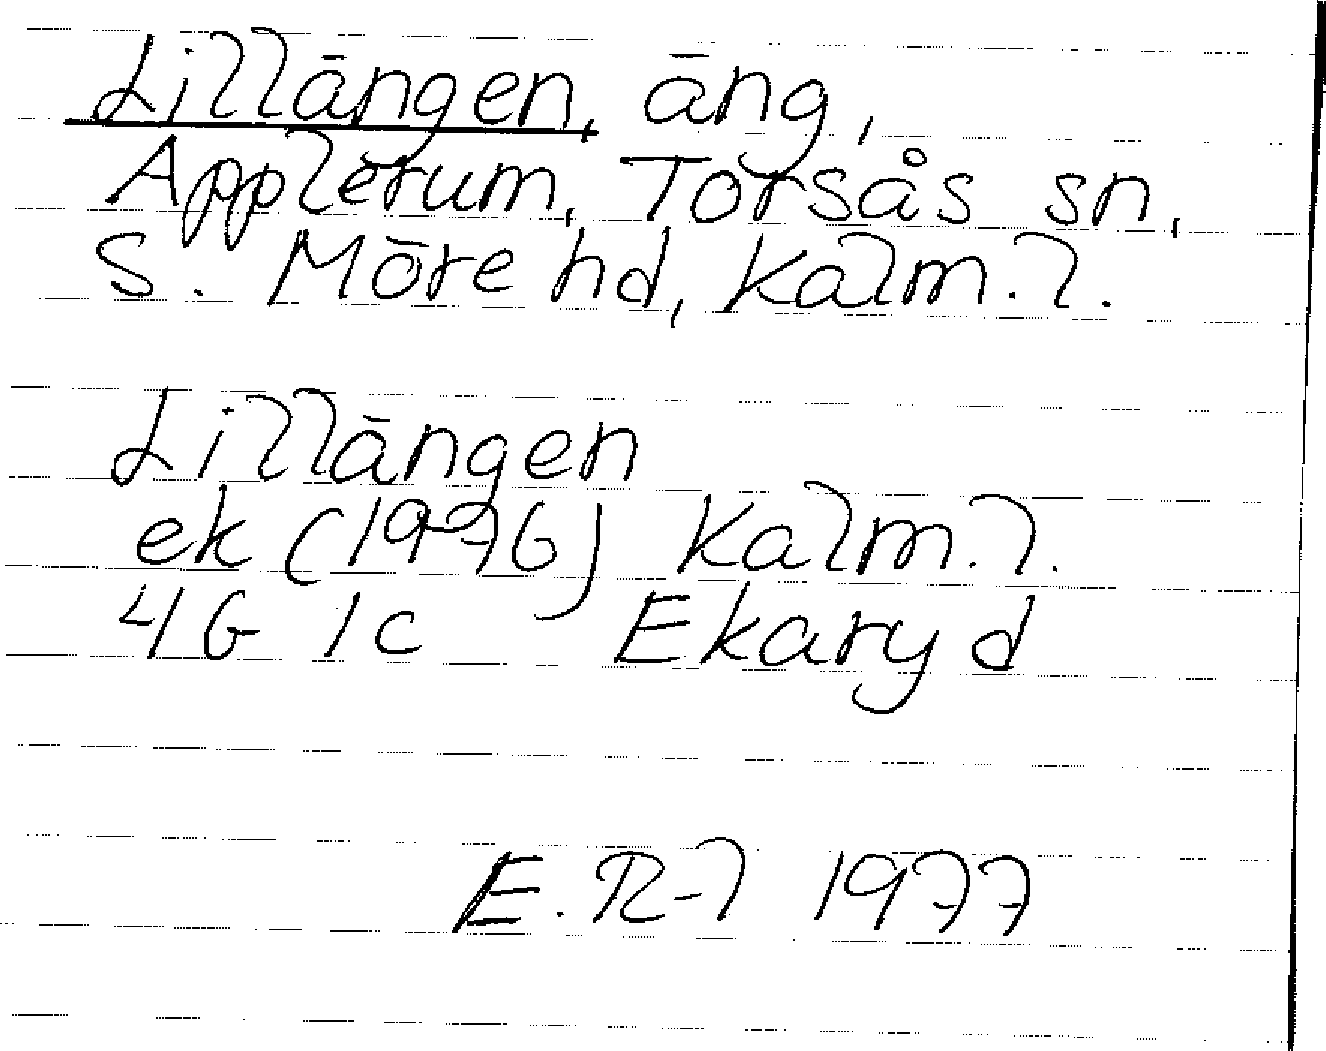 Lillängen, äng,
Applerum, Torsås sn,
S. Möre hd, Kalm. l.
Lillängen
ek (1976) Kalm. l.
4G 1c Ekaryd
E. R-l 1977